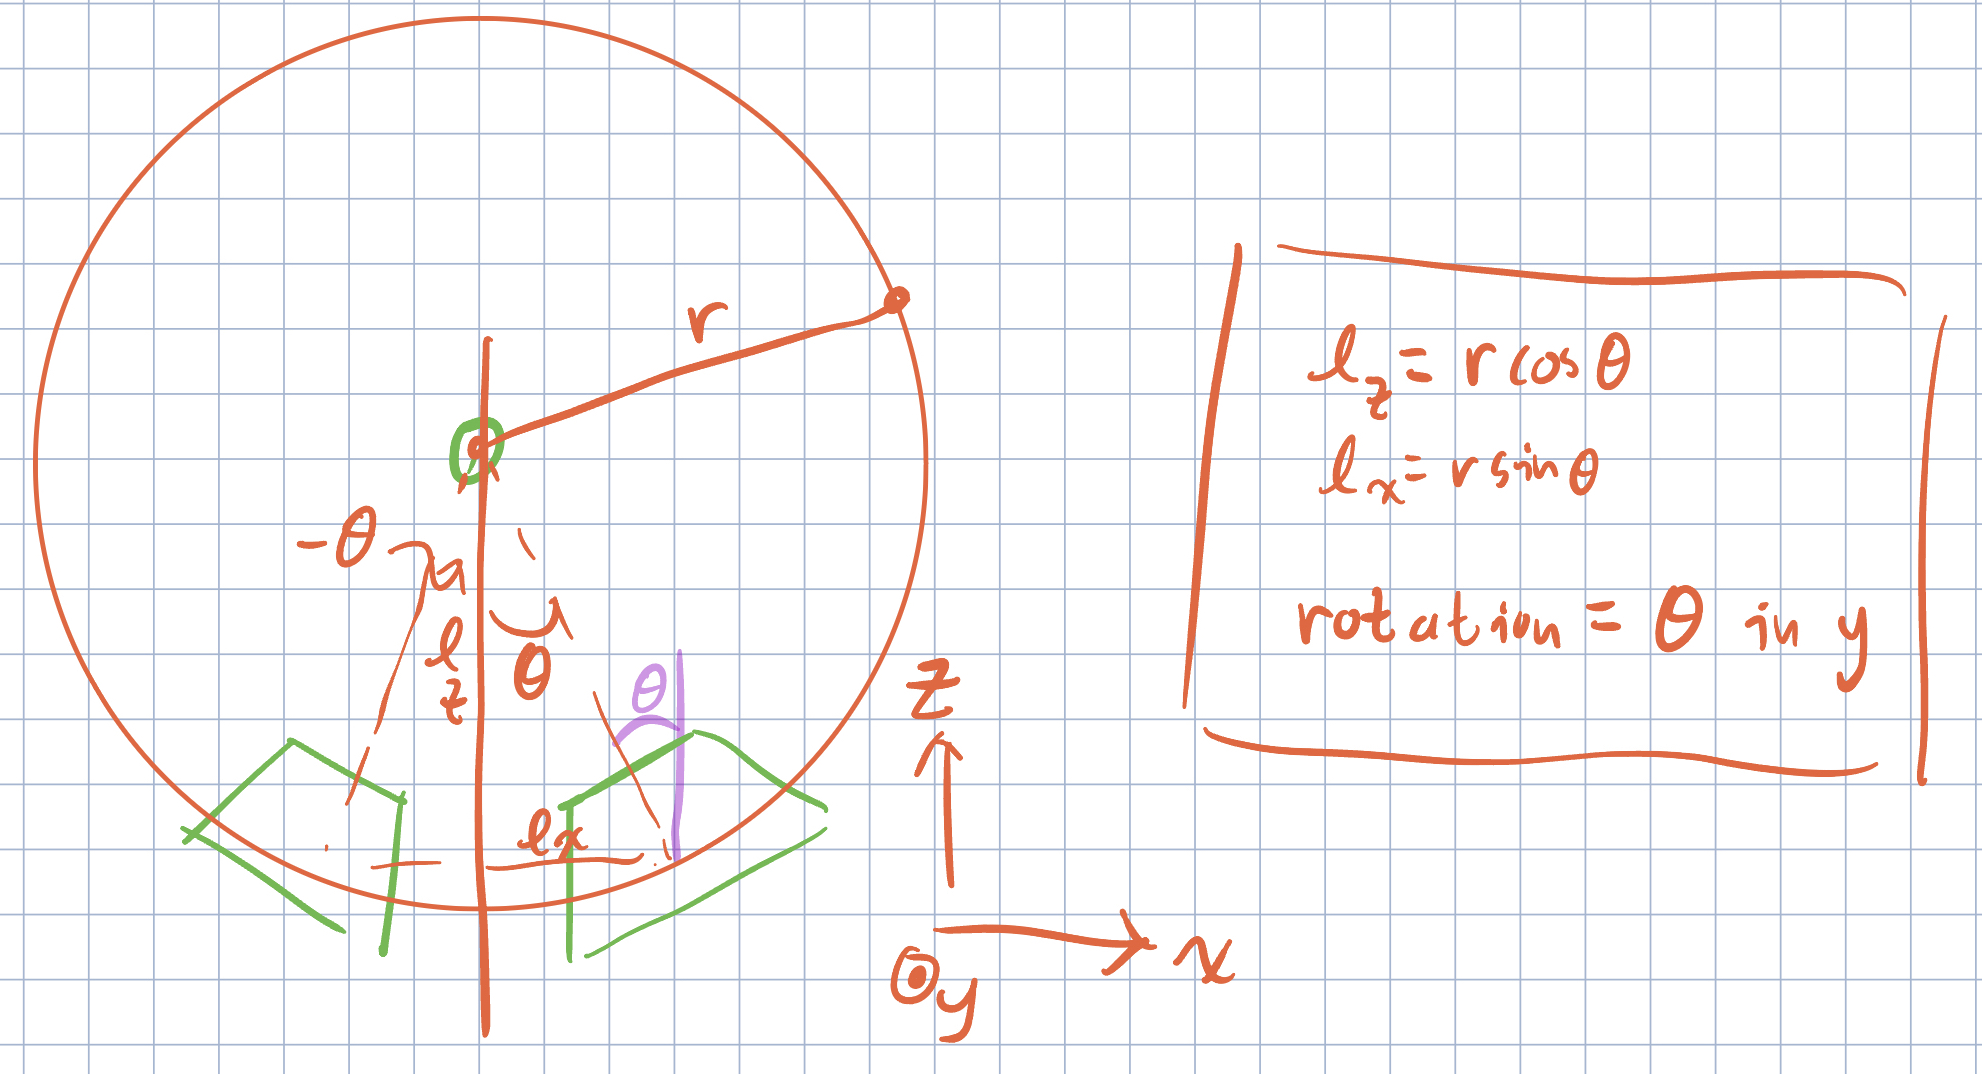 r
-θ
l_z
θ
θ
l_x
z
x
y
l_z = r cos θ
l_x = r sin θ
rotation = θ in y